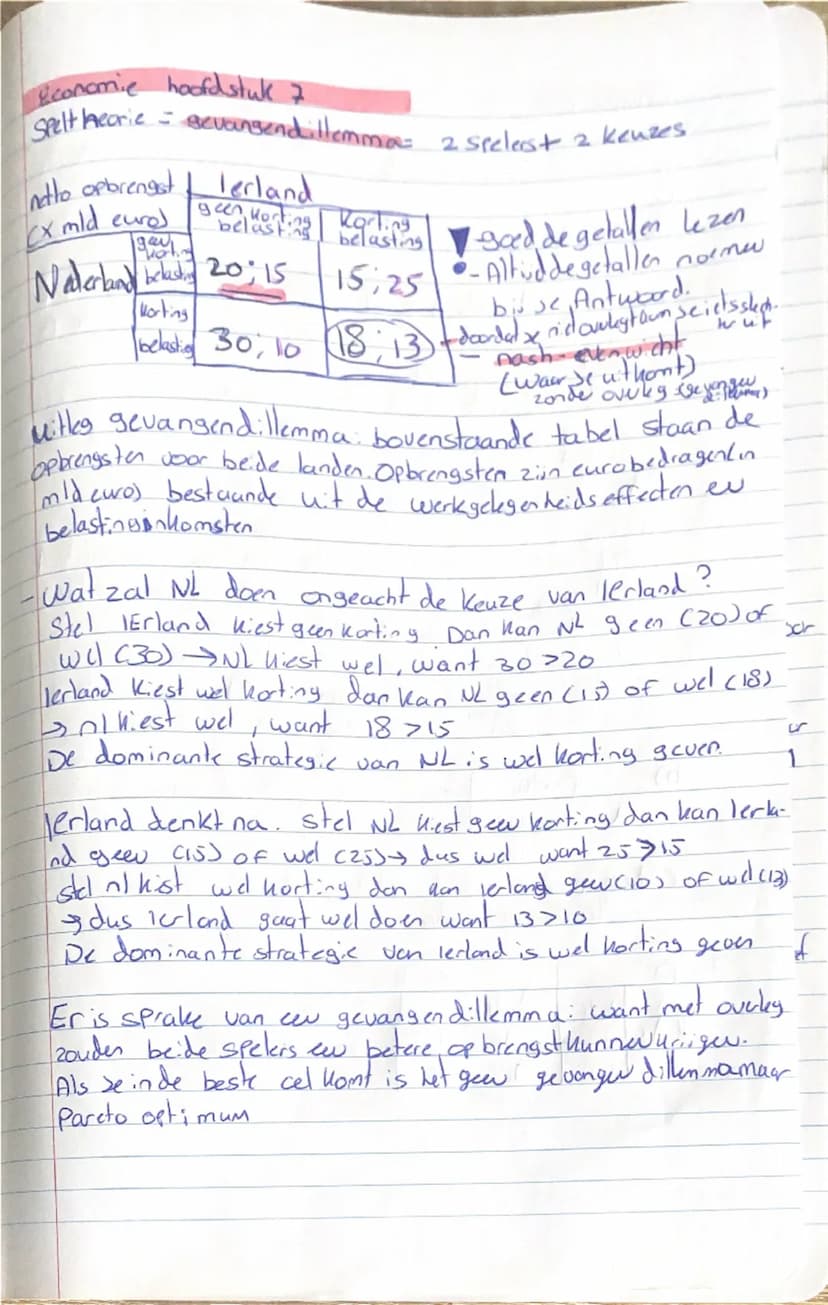 Economie hoofdstuk 7
Speltheorie = gevangendillemma = 2 spelers + 2 keuzes
netto opbrengst
(x mld euro)
Ierland
geen korting belasting
korting belasting
Nederland
geen korting belasting
20; 15
15; 25
korting belasting
30; 10
18; 13
! goed de getallen lezen
- Altijd de getallen noemen
bij je Antwoord.
- doordat ze niet overleggen
- nash-evenwicht
(waar je uitkomt)
zonde overleg (gevangen dillemma)
uitleg gevangendillemma: bovenstaande tabel staan de
opbrengsten voor beide landen. Opbrengsten zijn eurobedragen (in
mld euro) bestaande uit de werkgelegenheids effecten en
belastinginkomsten
- Wat zal NL doen ongeacht de keuze van Ierland?
Stel IErland kiest geen korting Dan kan NL geen (20) of
wel (30) → NL kiest wel, want 30 > 20
Ierland kiest wel korting dan kan NL geen (15) of wel (18)
→ nl kiest wel, want 18 > 15
De dominante strategie van NL is wel korting geven.
IErland denkt na. stel NL kiest geen korting dan kan Ierla-
nd geen (15) of wel (25) → dus wel want 25 > 15
stel nl kist wel korting dan kan ierland geen (10) of wel (13)
→ dus ierland gaat wel doen want 13 > 10
De dominante strategie van ierland is wel korting geven
Er is sprake van een gevangendillemma: want met overleg
zouden beide spelers een betere opbrengst kunnen krijgen.
Als je in de beste cel komt is het geen gevangen dillemma maar
Pareto optimum